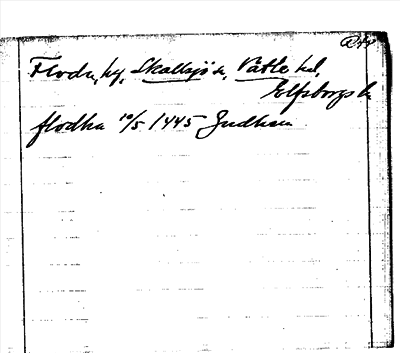 Floda, by, Skallsjö sn, Vättle hd,
Elfsborgs l.
flodha 10/5 1445